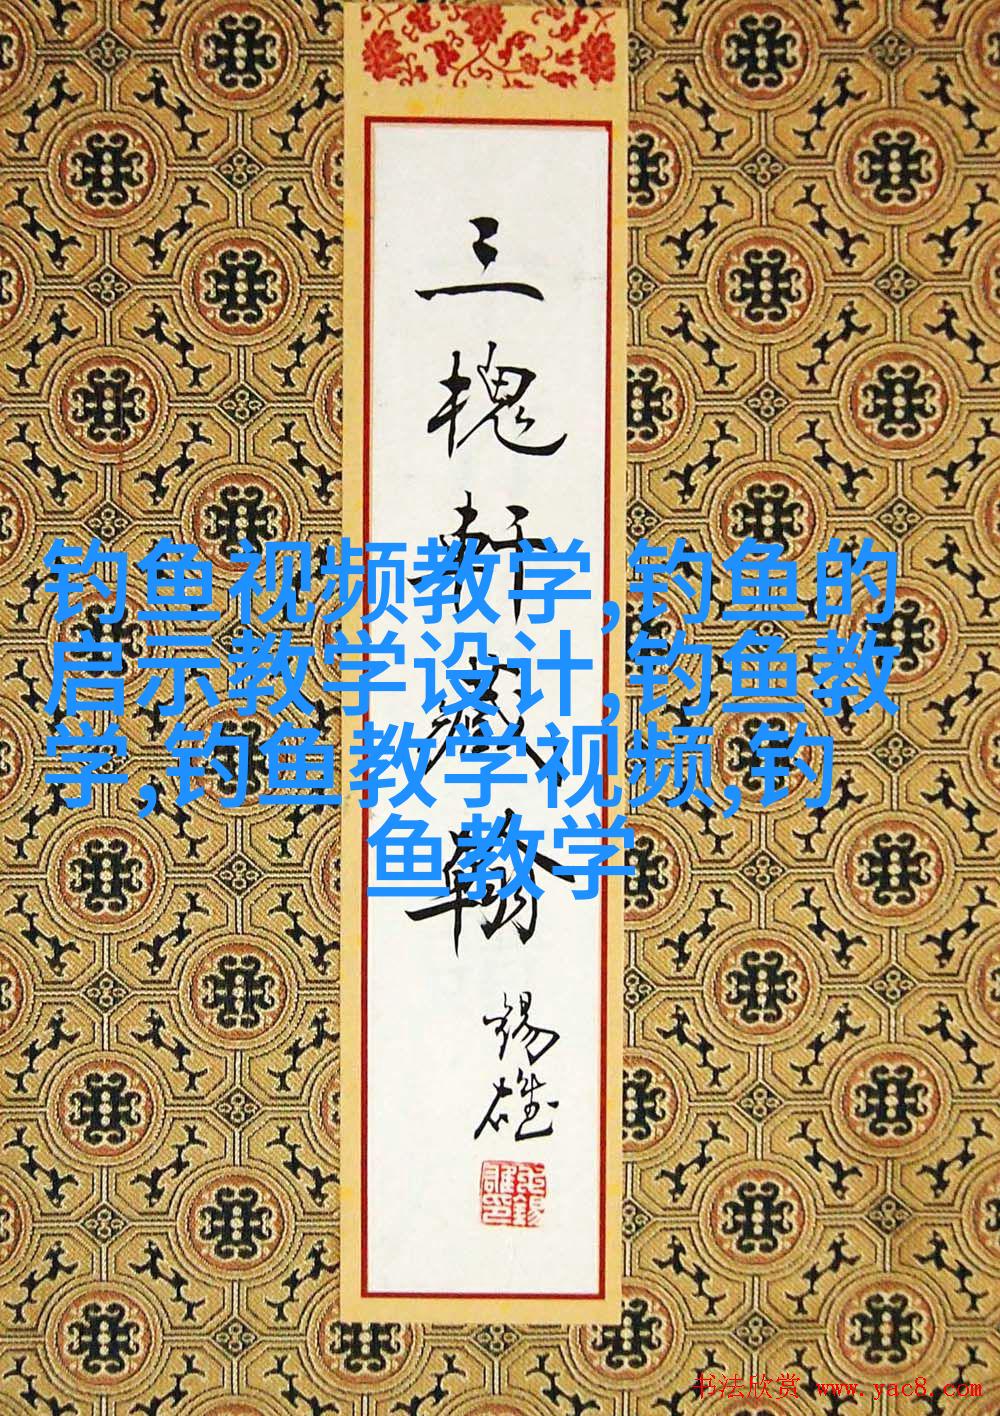 三槐軒藏翰
錫雄
钓鱼视频教学,钓鱼的
启示教学设计,钓鱼教
学,钓鱼教学视频,钓
鱼教学
书法欣赏 www.yac8.com